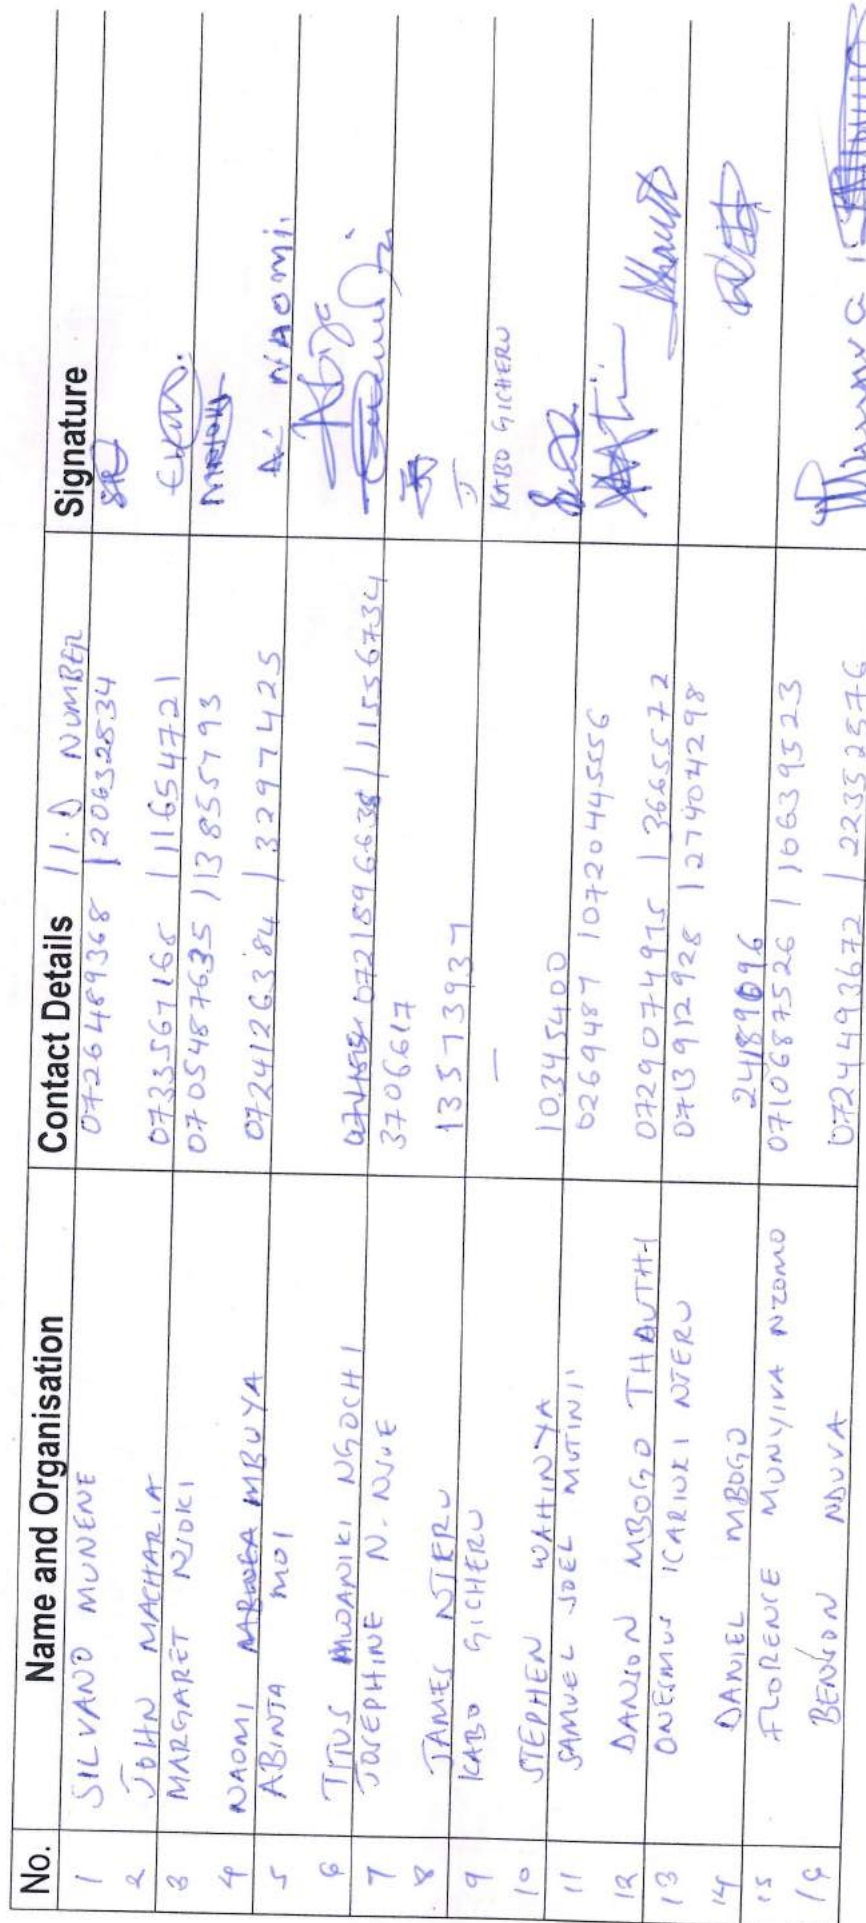 No. Name and Organisation Contact Details / I.D NUMBER Signature
1 SILVANO MUNENE 0726489368 / 20632534
2 JOHN MACHARIA 0733567165 / 11654721
3 MARGARET NJOKI 0705487635 / 13855793
4 NAOMI MBUYA 0724126384 / 3297425 NAOMI.
5 ABINJA MOI
6 TITUS MWANIKI NGOCHI 0721896638 / 11556734
7 JOSEPHINE N. NJUE 3706617
8 JAMES NJERU 13573937
9 KABO GICHERU — KABO GICHERU
10 STEPHEN WAHINYA 10345400
11 SAMUEL JOEL MUTINJI 0269487 / 0720445556
12 DANSON MBOGO THAUTHI 0729074975 / 3665572
13 ONESMUS KARIUKI NJERU 0713912928 / 27404298
14 DANIEL MBOGO 24189096
15 FLORENCE MUNYIVA NZOMO 0710687526 / 10639523
16 BENSON NDUVA 0724493672 / 22352576